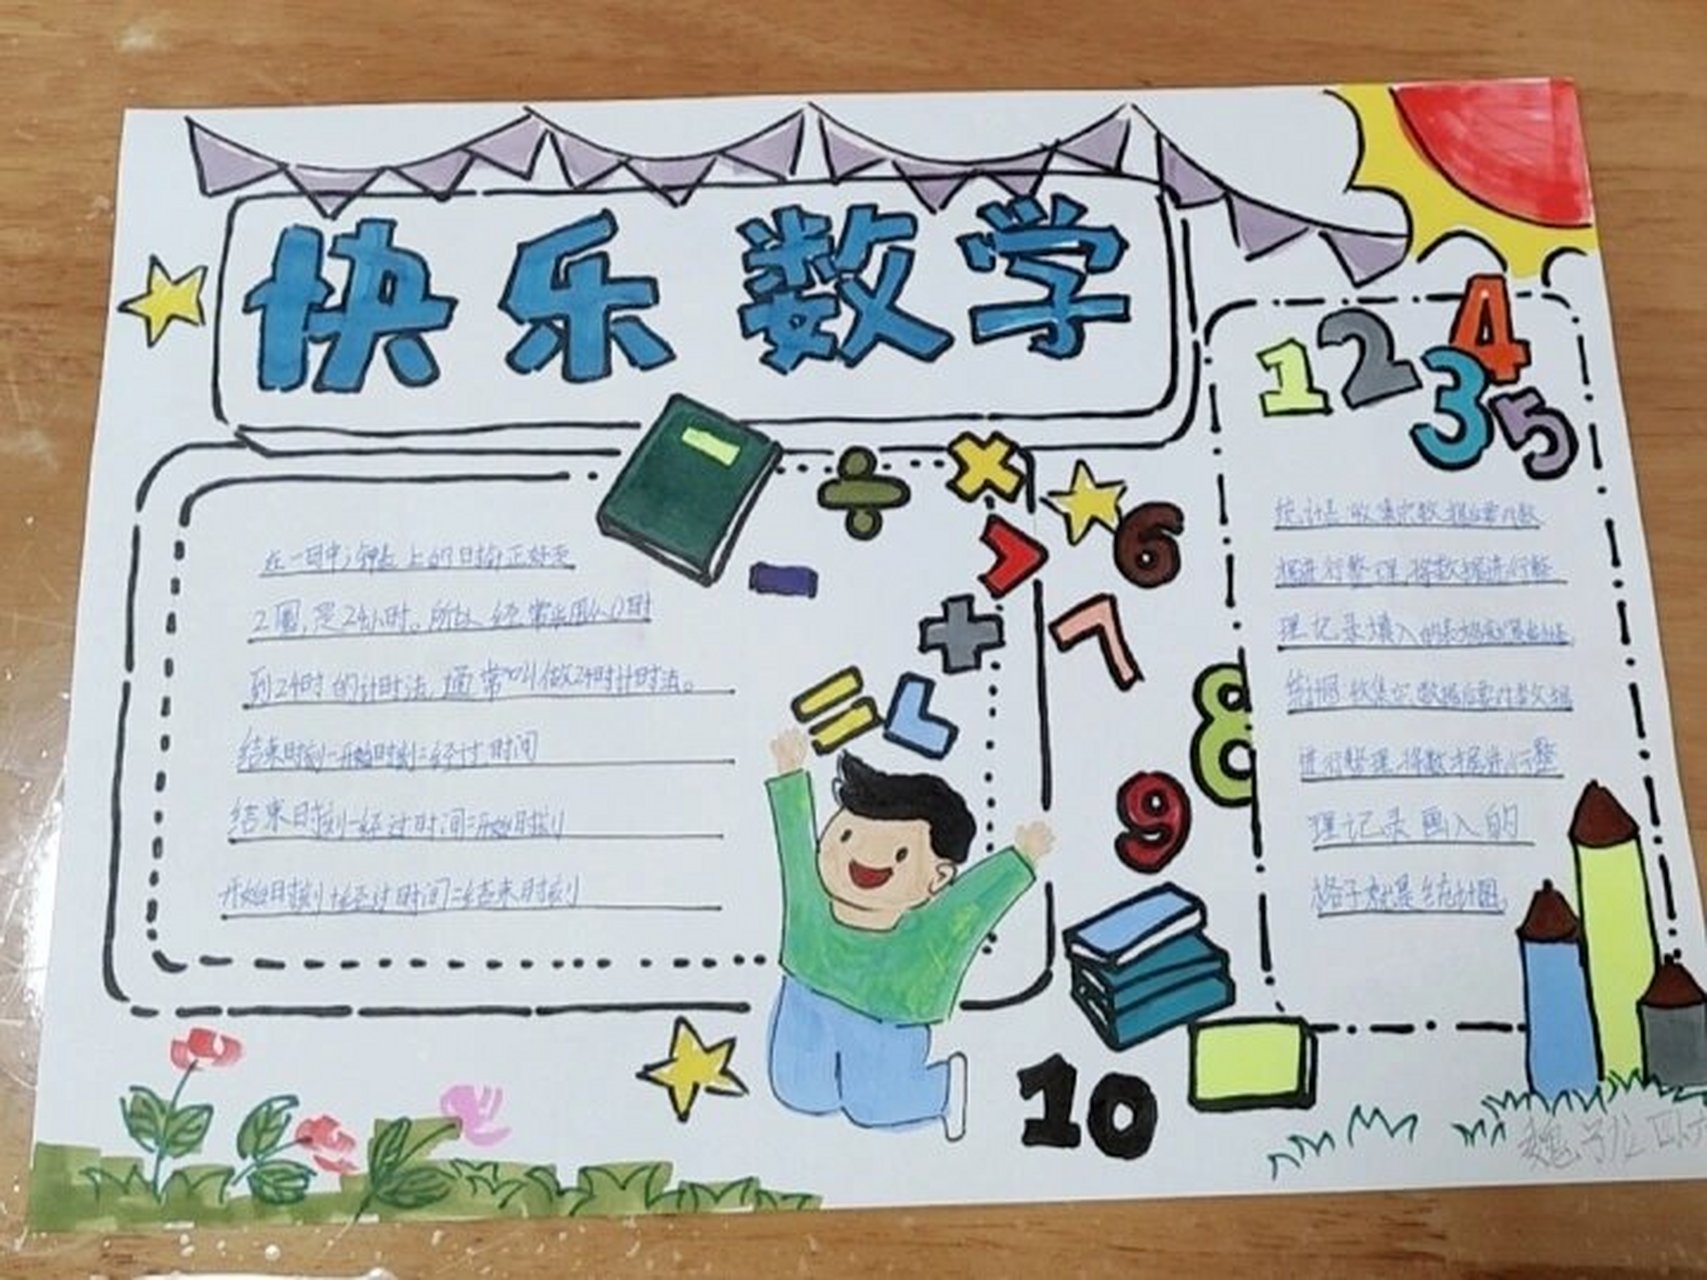 快乐数学
在一日中,钟表上的时针正好走
2圈,是24小时。所以,经常采用从0时
到24时的计时法,通常叫做24时计时法。
结束时刻-开始时刻=经过时间
结束时刻-经过时间=开始时刻
开始时刻+经过时间=结束时刻
1 2 3 4 5
6
7
8
9
10
统计表收集完数据后要对数
据进行整理,将数据进行整
理记录填入的表格就是统计表
统计图收集完数据后要对数据
进行整理,将数据进行整
理记录画入的
格子就是统计图。
魏